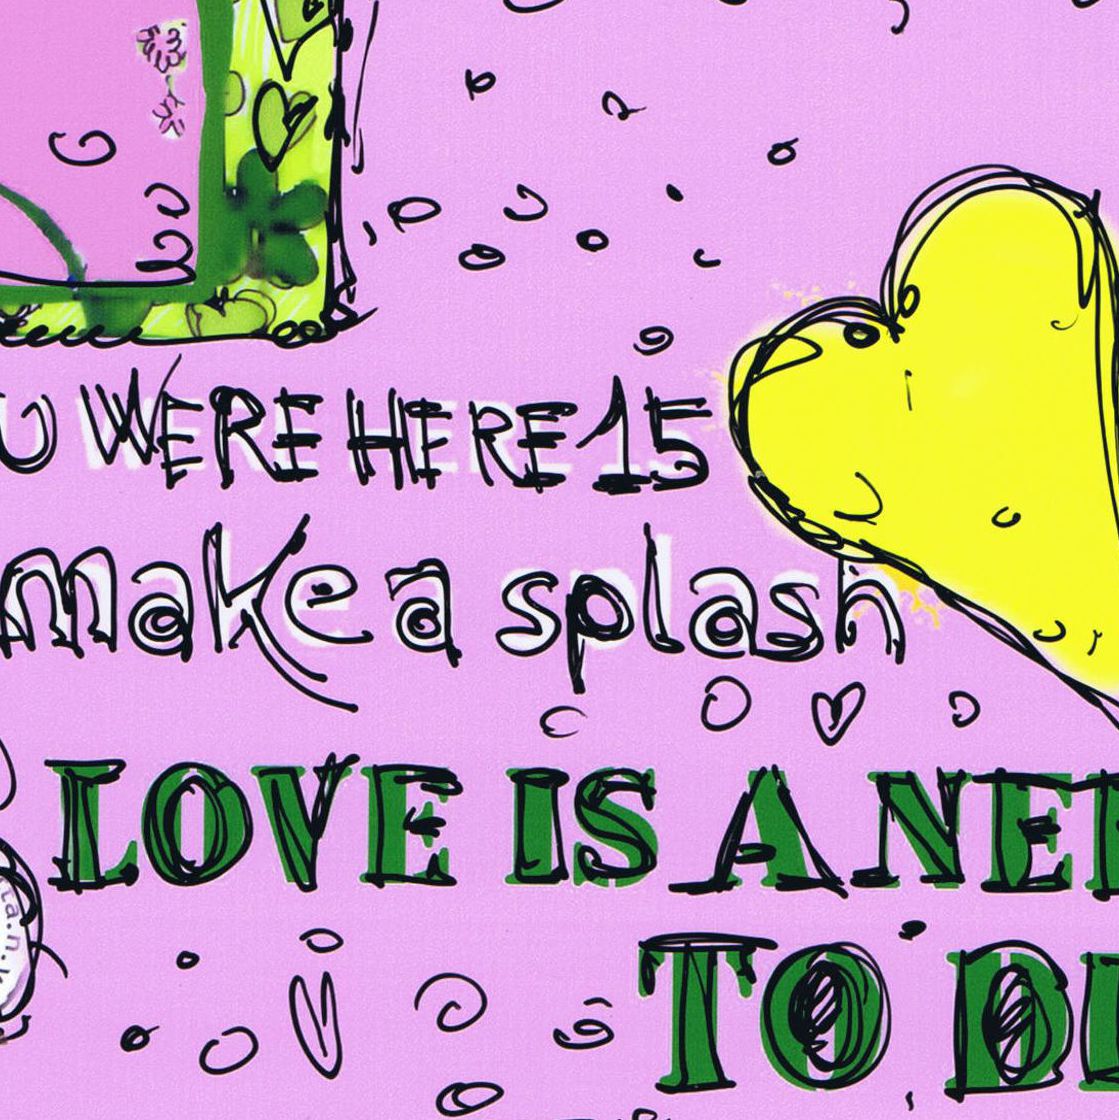 U WERE HERE 15
make a splash
LOVE IS A NE
TO D